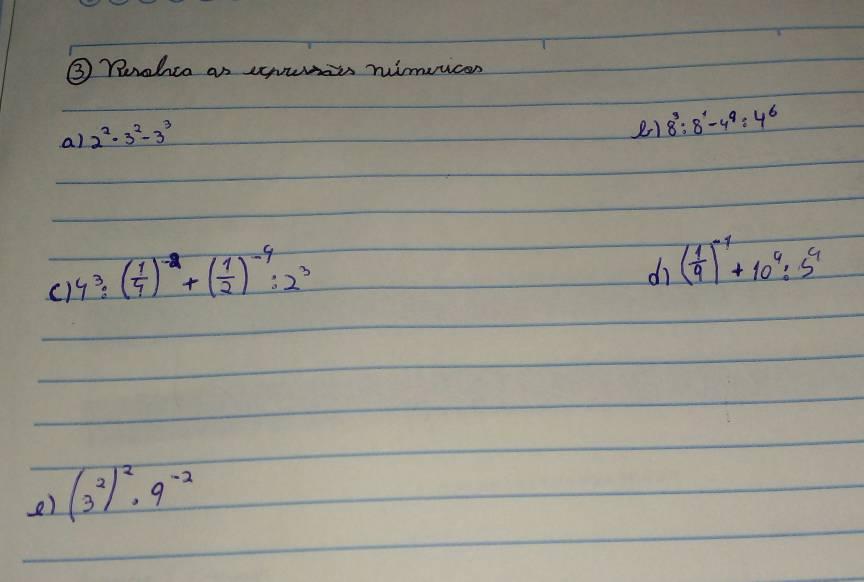 ③ Resolva as expressões númericas
a) 2² · 3² - 3³
b) 8³ : 8¹ - 4⁹ : 4⁶
c) 4³ : (1/4)⁻² + (1/2)⁻⁴ : 2³
d) (1/9)⁻¹ + 10⁴ : 5⁴
e) (3²)² · 9⁻²